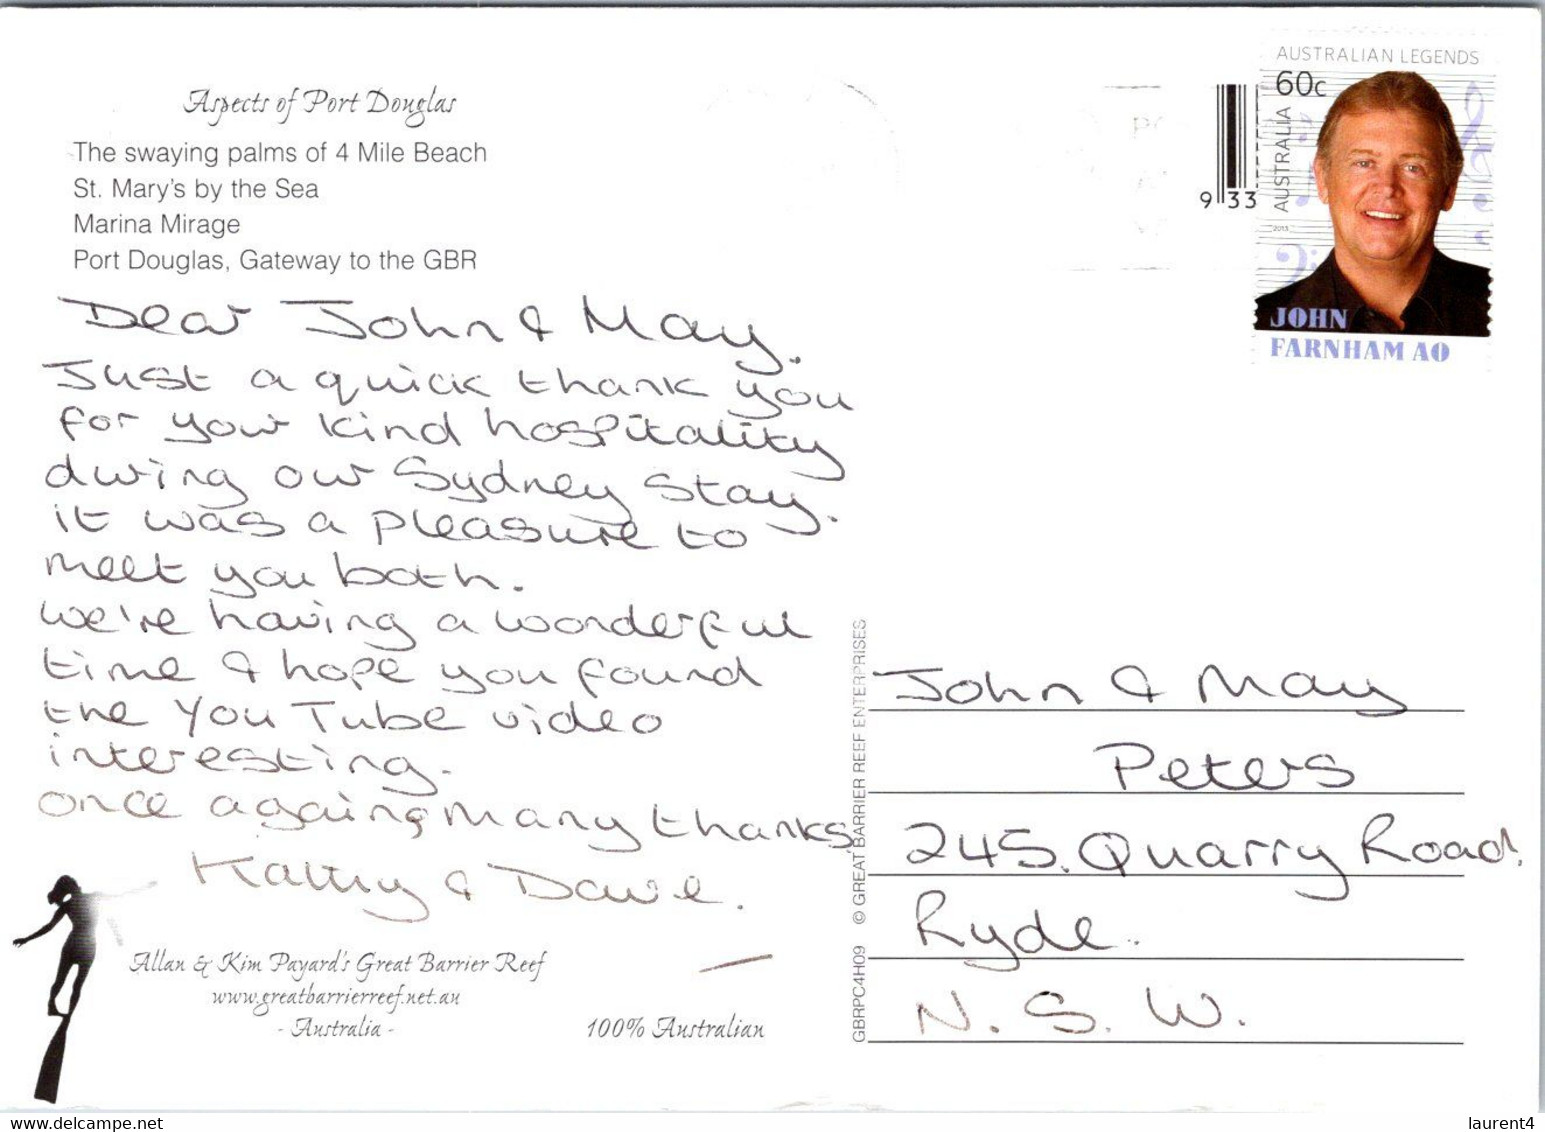 Aspects of Port Douglas
The swaying palms of 4 Mile Beach
St. Mary's by the Sea
Marina Mirage
Port Douglas, Gateway to the GBR
Dear John & May.
Just a quick thank you
for your kind hospitality
during our Sydney stay.
it was a pleasure to
meet you both.
we're having a wonderful
time & hope you found
the YouTube video
interesting.
once again, many thanks
Kathy & Dave.
Allan & Kim Payard's Great Barrier Reef
www.greatbarrierreef.net.au
- Australia -
100% Australian
GBRPC4H09 © GREAT BARRIER REEF ENTERPRISES
933
AUSTRALIAN LEGENDS
60c
AUSTRALIA
2013
JOHN
FARNHAM AO
John & May
Peters
245. Quarry Road,
Ryde.
N. S. W.
laurent4